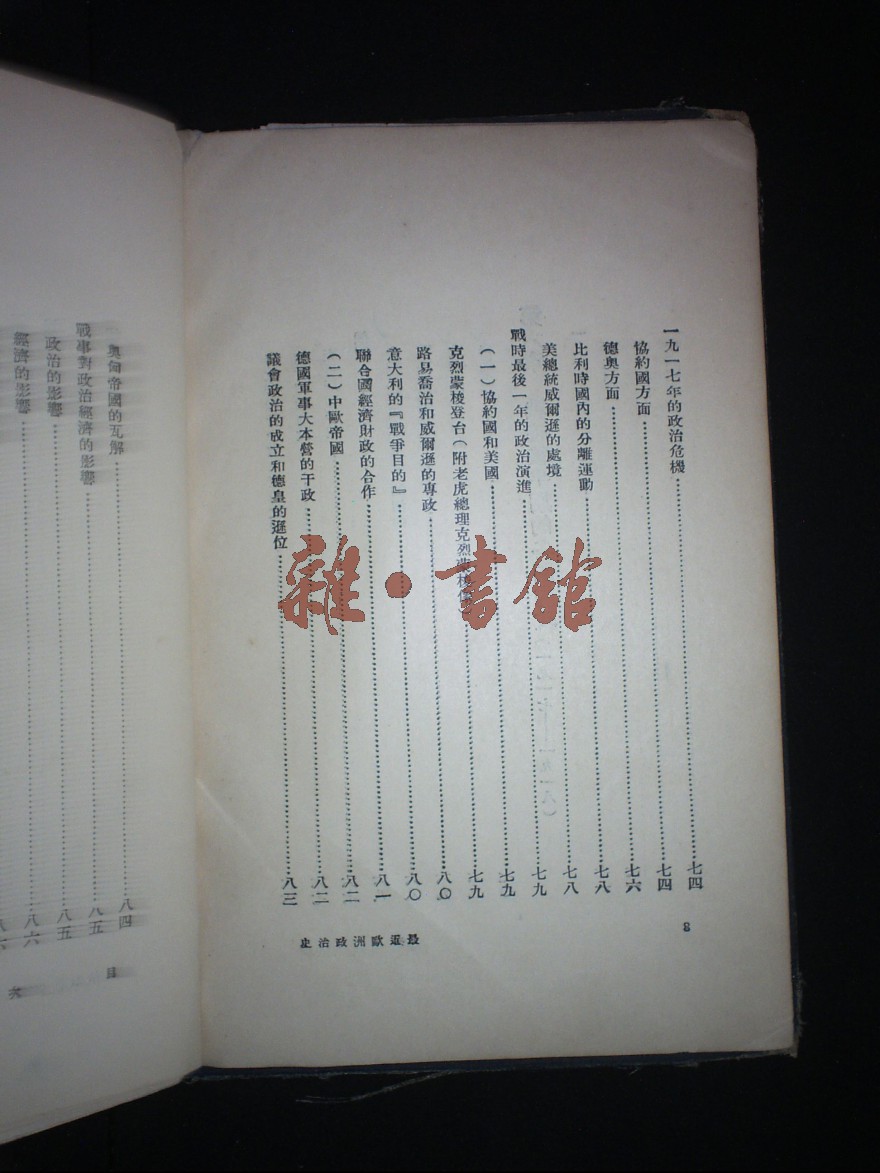 一九一七年的政治危機……七四
協約國方面……七四
德奧方面……七六
比利時國內的分離運動……七八
美總統威爾遜的處境……七八
戰時最後一年的政治演進……七九
(一)協約國和美國……七九
克烈蒙梭登台(附老虎總理克烈蒙梭傳)……七九
路易喬治和威爾遜的專政……八〇
意大利的『戰爭目的』……八〇
聯合國經濟財政的合作……八一
(二)中歐帝國……八二
德國軍事大本營的干政……八二
議會政治的成立和德皇的遜位……八三
最近歐洲政治史
8
奧匈帝國的瓦解……八四
戰事對政治經濟的影響……八五
政治的影響……八五
經濟的影響……八六
目
次
雜·書館